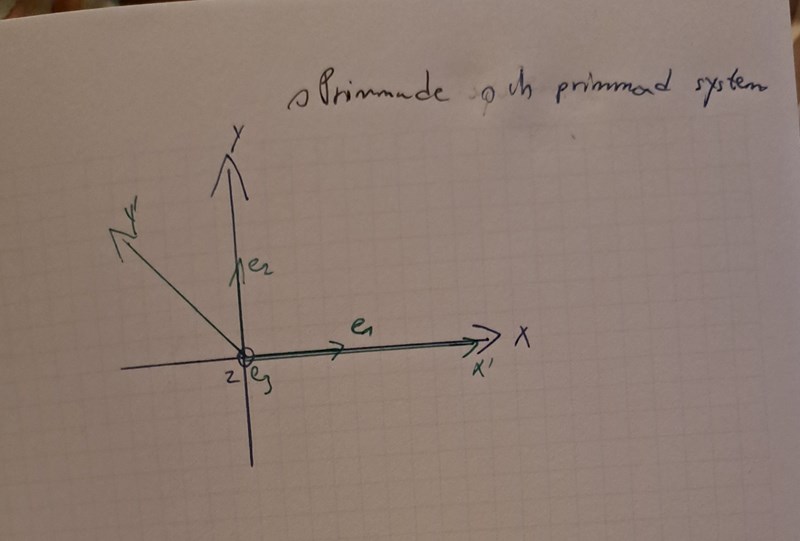 oPrimmade och primmad system
Y
Y'
e2
e1
X
X'
z e3